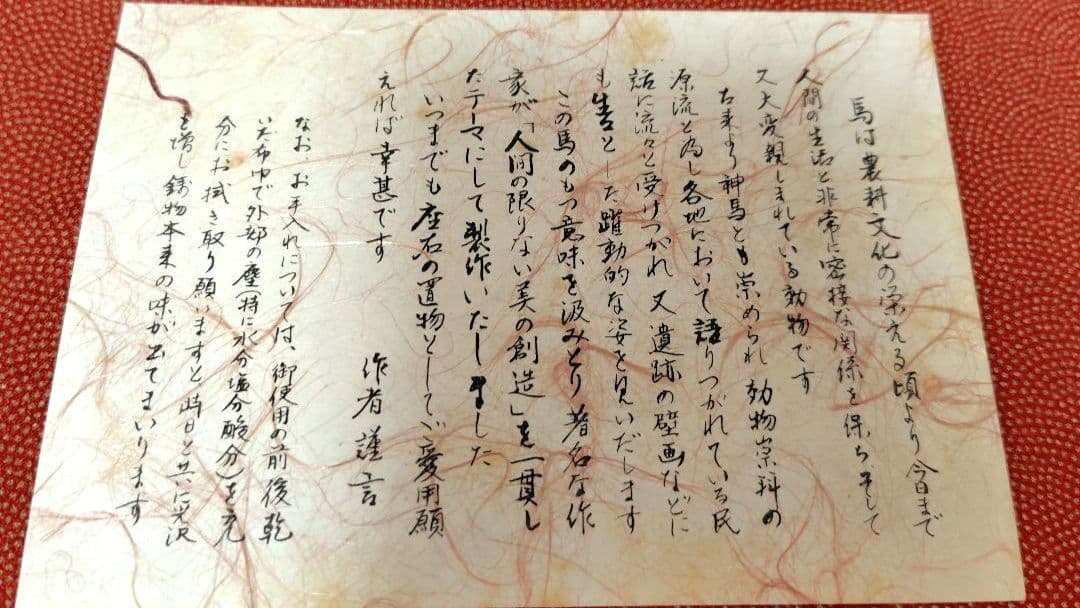 馬は農耕文化の栄える頃より今日まで
人間の生活と非常に密接な関係を保ちそして
又大変親しまれている動物です
古来より神馬とも崇められ動物崇拝の
源流と為し各地において語りつがれている民
話に流々と受けつがれ又遺跡の壁画などに
も生き〻とした躍動的な姿を見いだします
この馬のもつ意味を汲みとり著名な作
家が「人間の限りない美の創造」を一貫し
たテーマにして製作いたしました
いつまでも座右の置物としてご愛用願
えれば幸甚です
作者謹言
なお、お手入れについては、御使用の前後乾
いた布巾で外部の塵(特に水分塩分酸分)を充
分にお拭き取り願いますと時日と共に光沢
も増し鋳物本来の味が出てまいります